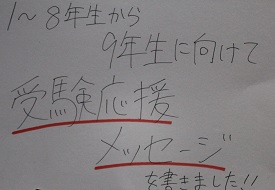 1～8年生から
9年生に向けて
受験応援
メッセージ
を書きました!!